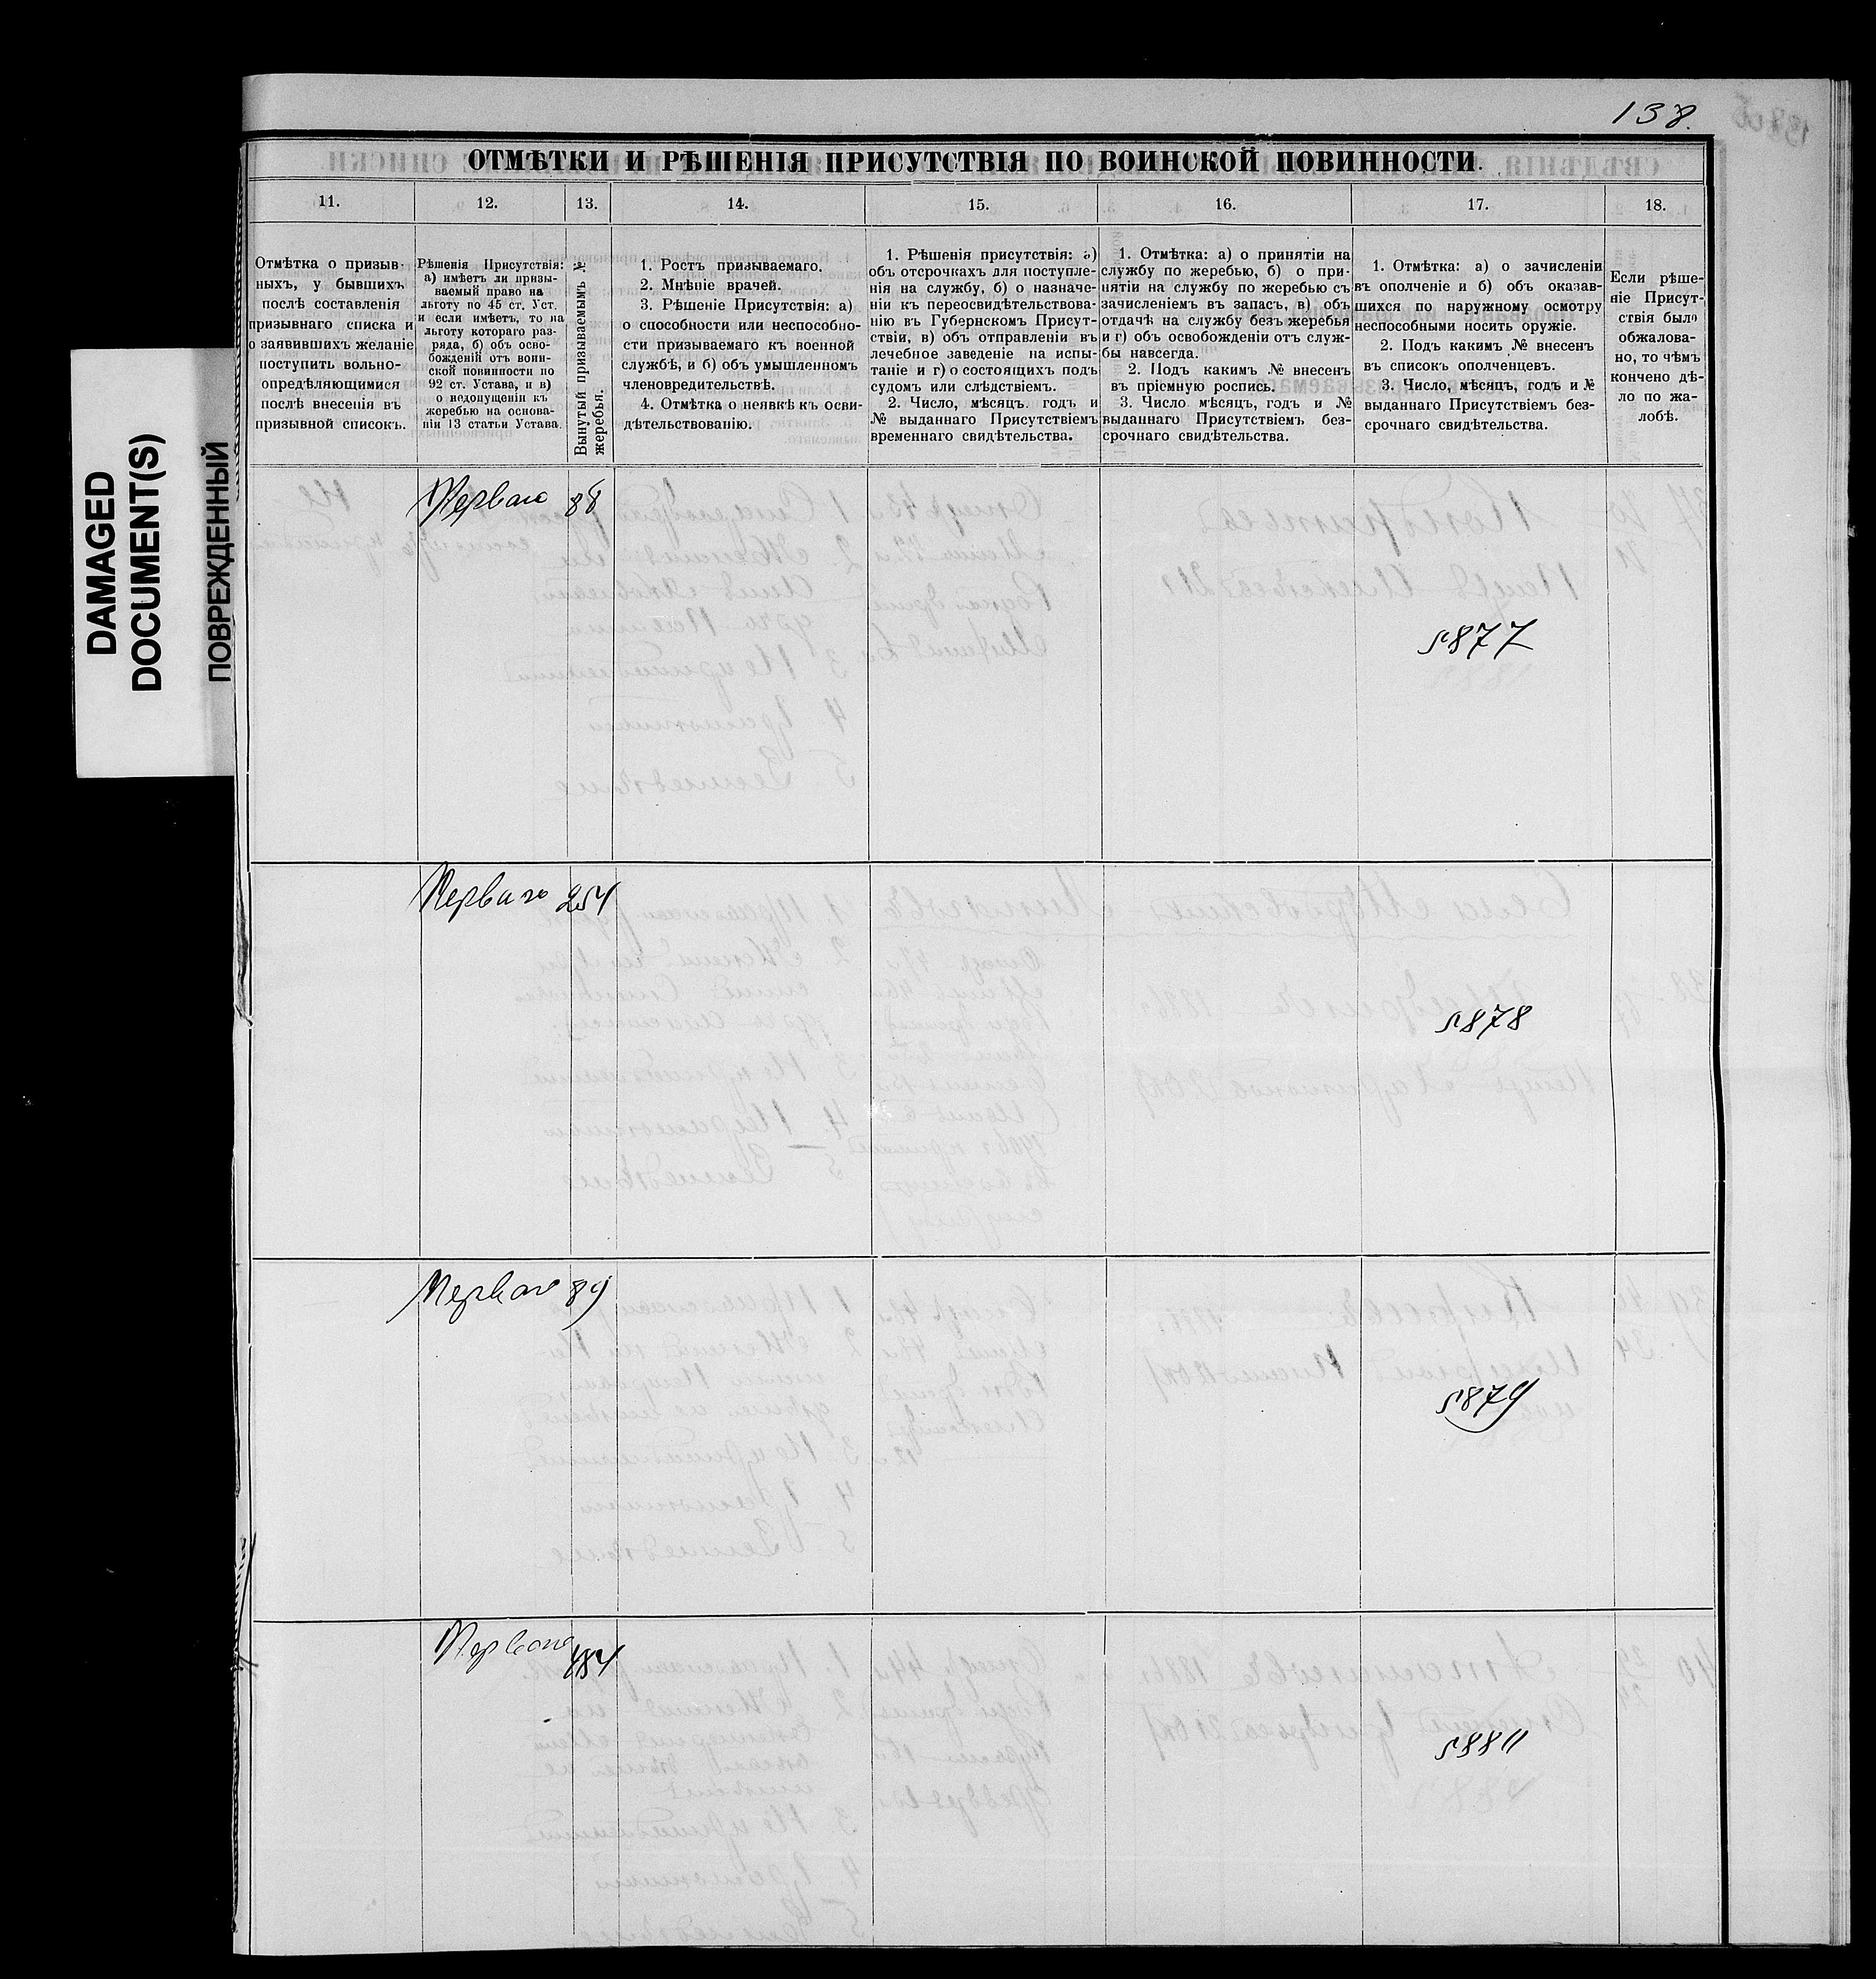 138.
DAMAGED
DOCUMENT(S)
ПОВРЕЖДЕННЫЙ
ОТМѢТКИ И РѢШЕНІЯ ПРИСУТСТВІЯ ПО ВОИНСКОЙ ПОВИННОСТИ.
11. 12. 13. 14. 15. 16. 17. 18.
Отмѣтка о призыв-
ныхъ, у бывшихъ
послѣ составленія
призывнаго списка и
о заявившихъ желаніе
поступить вольно-
опредѣляющимися
послѣ внесенія въ
призывной списокъ.
Рѣшенія Присутствія:
а) имѣетъ ли призы-
ваемый право на
льготу по 45 ст. Уст.
и если имѣетъ, то на
льготу котораго раз-
ряда, б) объ осво-
божденій отъ воин-
ской повинности по
92 ст. Устава, и в)
о недопущеніи къ
жеребью на основа-
ніи 13 статьи Устава.
Вынутый призываемымъ №
жеребья.
1. Ростъ призываемаго.
2. Мнѣніе врачей.
3. Рѣшеніе Присутствія: а)
о способности или неспособно-
сти призываемаго къ военной
службѣ, и б) объ умышленномъ
членовредительствѣ.
4. Отмѣтка о неявкѣ къ осви-
дѣтельствованію.
1. Рѣшенія присутствія: а)
объ отсрочкахъ для поступле-
нія на службу, б) о назначе-
ніи къ переосвидѣтельствова-
нію въ Губернскомъ Присут-
ствіи, в) объ отправленіи въ
лечебное заведеніе на испы-
таніе и г) о состоящихъ подъ
судомъ или слѣдствіемъ.
2. Число, мѣсяцъ, годъ и
№ выданнаго Присутствіемъ
временнаго свидѣтельства.
1. Отмѣтка: а) о принятіи на
службу по жеребью, б) о при-
нятіи на службу по жеребью съ
зачисленіемъ въ запасъ, в) объ
отдачѣ на службу безъ жеребья
и г) объ освобожденіи отъ служ-
бы навсегда.
2. Подъ какимъ № внесенъ
въ пріемную роспись.
3. Число мѣсяцъ, годъ и №
выданнаго Присутствіемъ без-
срочнаго свидѣтельства.
1. Отмѣтка: а) о зачисленіи
въ ополченіе и б) объ оказав-
шихся по наружному осмотру
неспособными носить оружіе.
2. Подъ какимъ № внесенъ
въ списокъ ополченцевъ.
3. Число, мѣсяцъ, годъ и №
выданнаго Присутствіемъ без-
срочнаго свидѣтельства.
Если рѣше-
ніе Присут-
ствія было
обжалова-
но, то чѣмъ
кончено дѣ-
ло по жа-
лобѣ.
Перваго 88
5877
Перваго 254
5878
Перваго 89
5879
Перваго